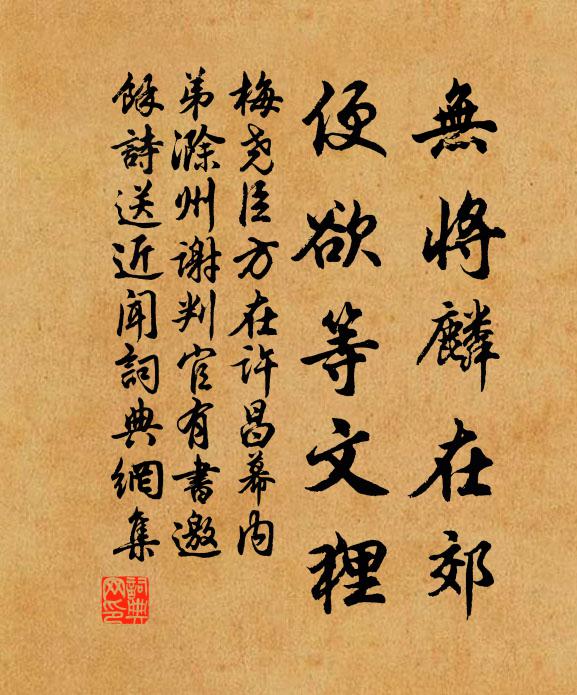 無將麟在郊
便欲等文狸
梅堯臣方在許昌幕内
弟滁州謝判官有書邀
餘詩送近聞詞典網集
詞典
网印